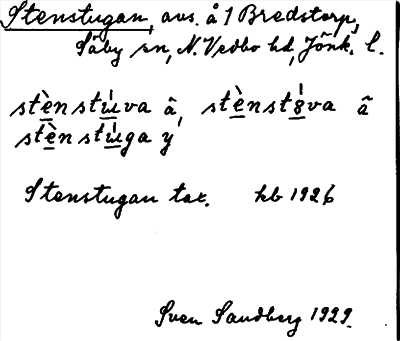 Stenstugan, avs. å 1 Bredstorp,
Säby sn, N. Vedbo hd, Jönk. l.
stènstùva ä̂, stènst8va ä̃
stènstùga y
Stenstugan tax. hb 1926
Sven Sandberg 1929.